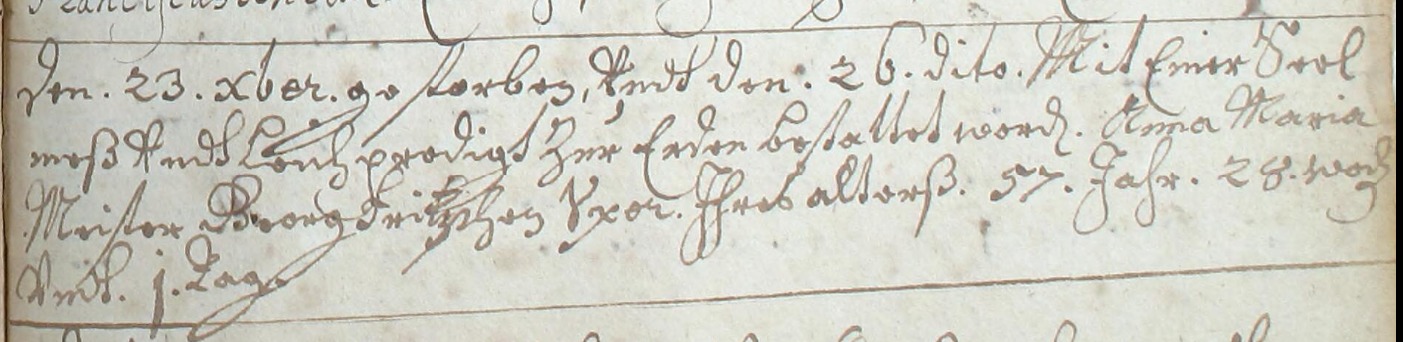 den. 23. xber. gestorben, Undt den. 26. dito. Mit Einer Seel
meß Undt Leich predigt Zur Erden bestattet word. Anna Maria
Meister Georg Fritschen Uxor. Ihres alterß. 57. Jahr. 28. woch
Undt. 1. Tag.